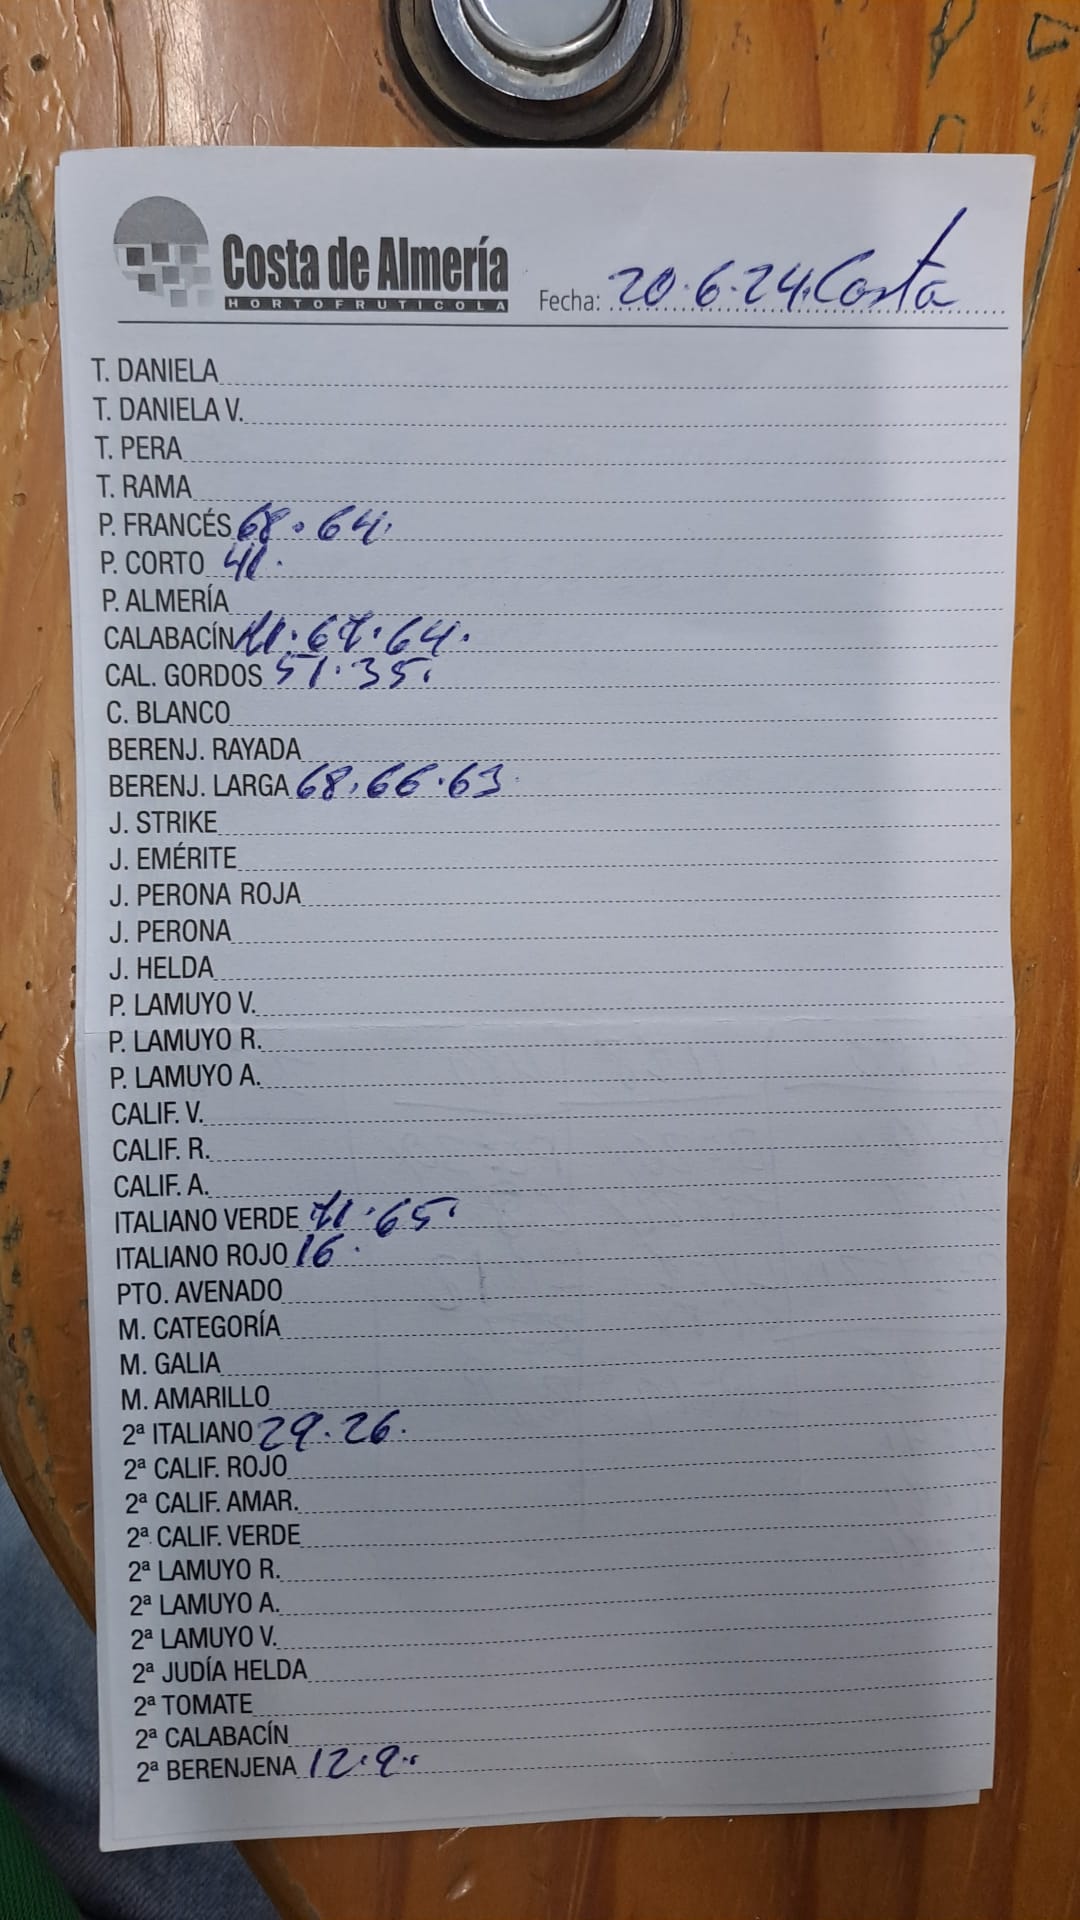 Costa de Almería
HORTOFRUTICOLA
Fecha: 20.6.24. Costa
T. DANIELA
T. DANIELA V.
T. PERA
T. RAMA
P. FRANCÉS 68. 64.
P. CORTO 41.
P. ALMERÍA
CALABACÍN 71. 67. 64.
CAL. GORDOS 51. 35.
C. BLANCO
BERENJ. RAYADA
BERENJ. LARGA 68. 66. 63
J. STRIKE
J. EMÉRITE
J. PERONA ROJA
J. PERONA
J. HELDA
P. LAMUYO V.
P. LAMUYO R.
P. LAMUYO A.
CALIF. V.
CALIF. R.
CALIF. A.
ITALIANO VERDE 71. 65.
ITALIANO ROJO 16.
PTO. AVENADO
M. CATEGORÍA
M. GALIA
M. AMARILLO
2ª ITALIANO 29. 26.
2ª CALIF. ROJO
2ª CALIF. AMAR.
2ª CALIF. VERDE
2ª LAMUYO R.
2ª LAMUYO A.
2ª LAMUYO V.
2ª JUDÍA HELDA
2ª TOMATE
2ª CALABACÍN
2ª BERENJENA 12. 9.